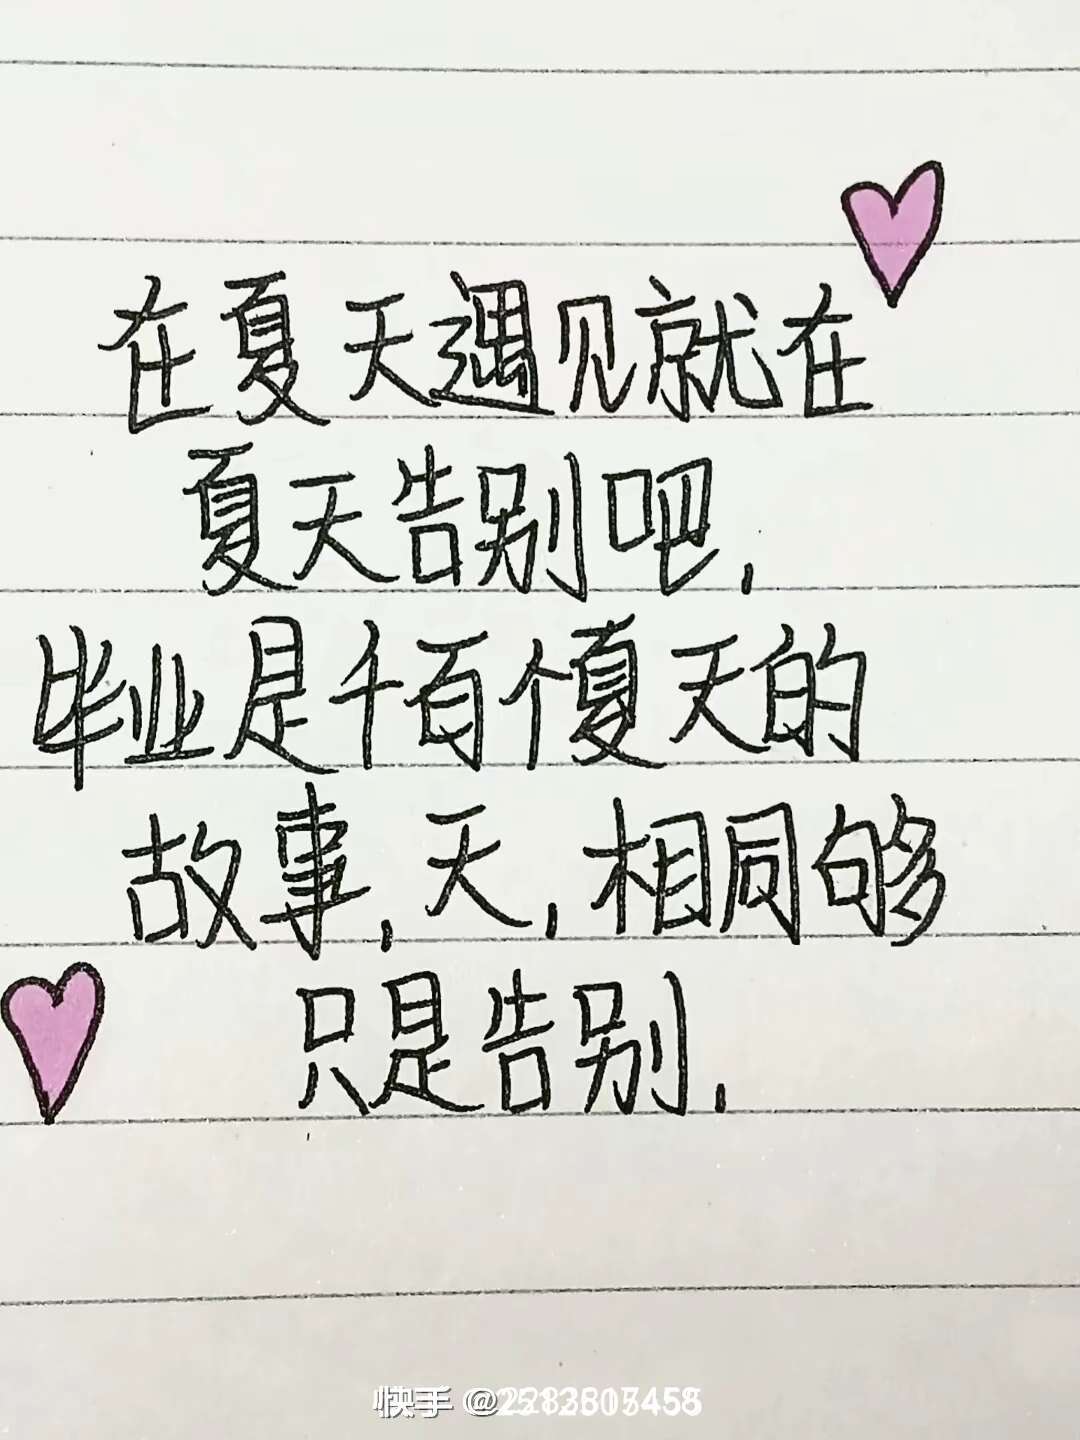 在夏天遇见就在
夏天告别吧,
毕业是千百个夏天的
故事,天,相同够
只是告别,
快手